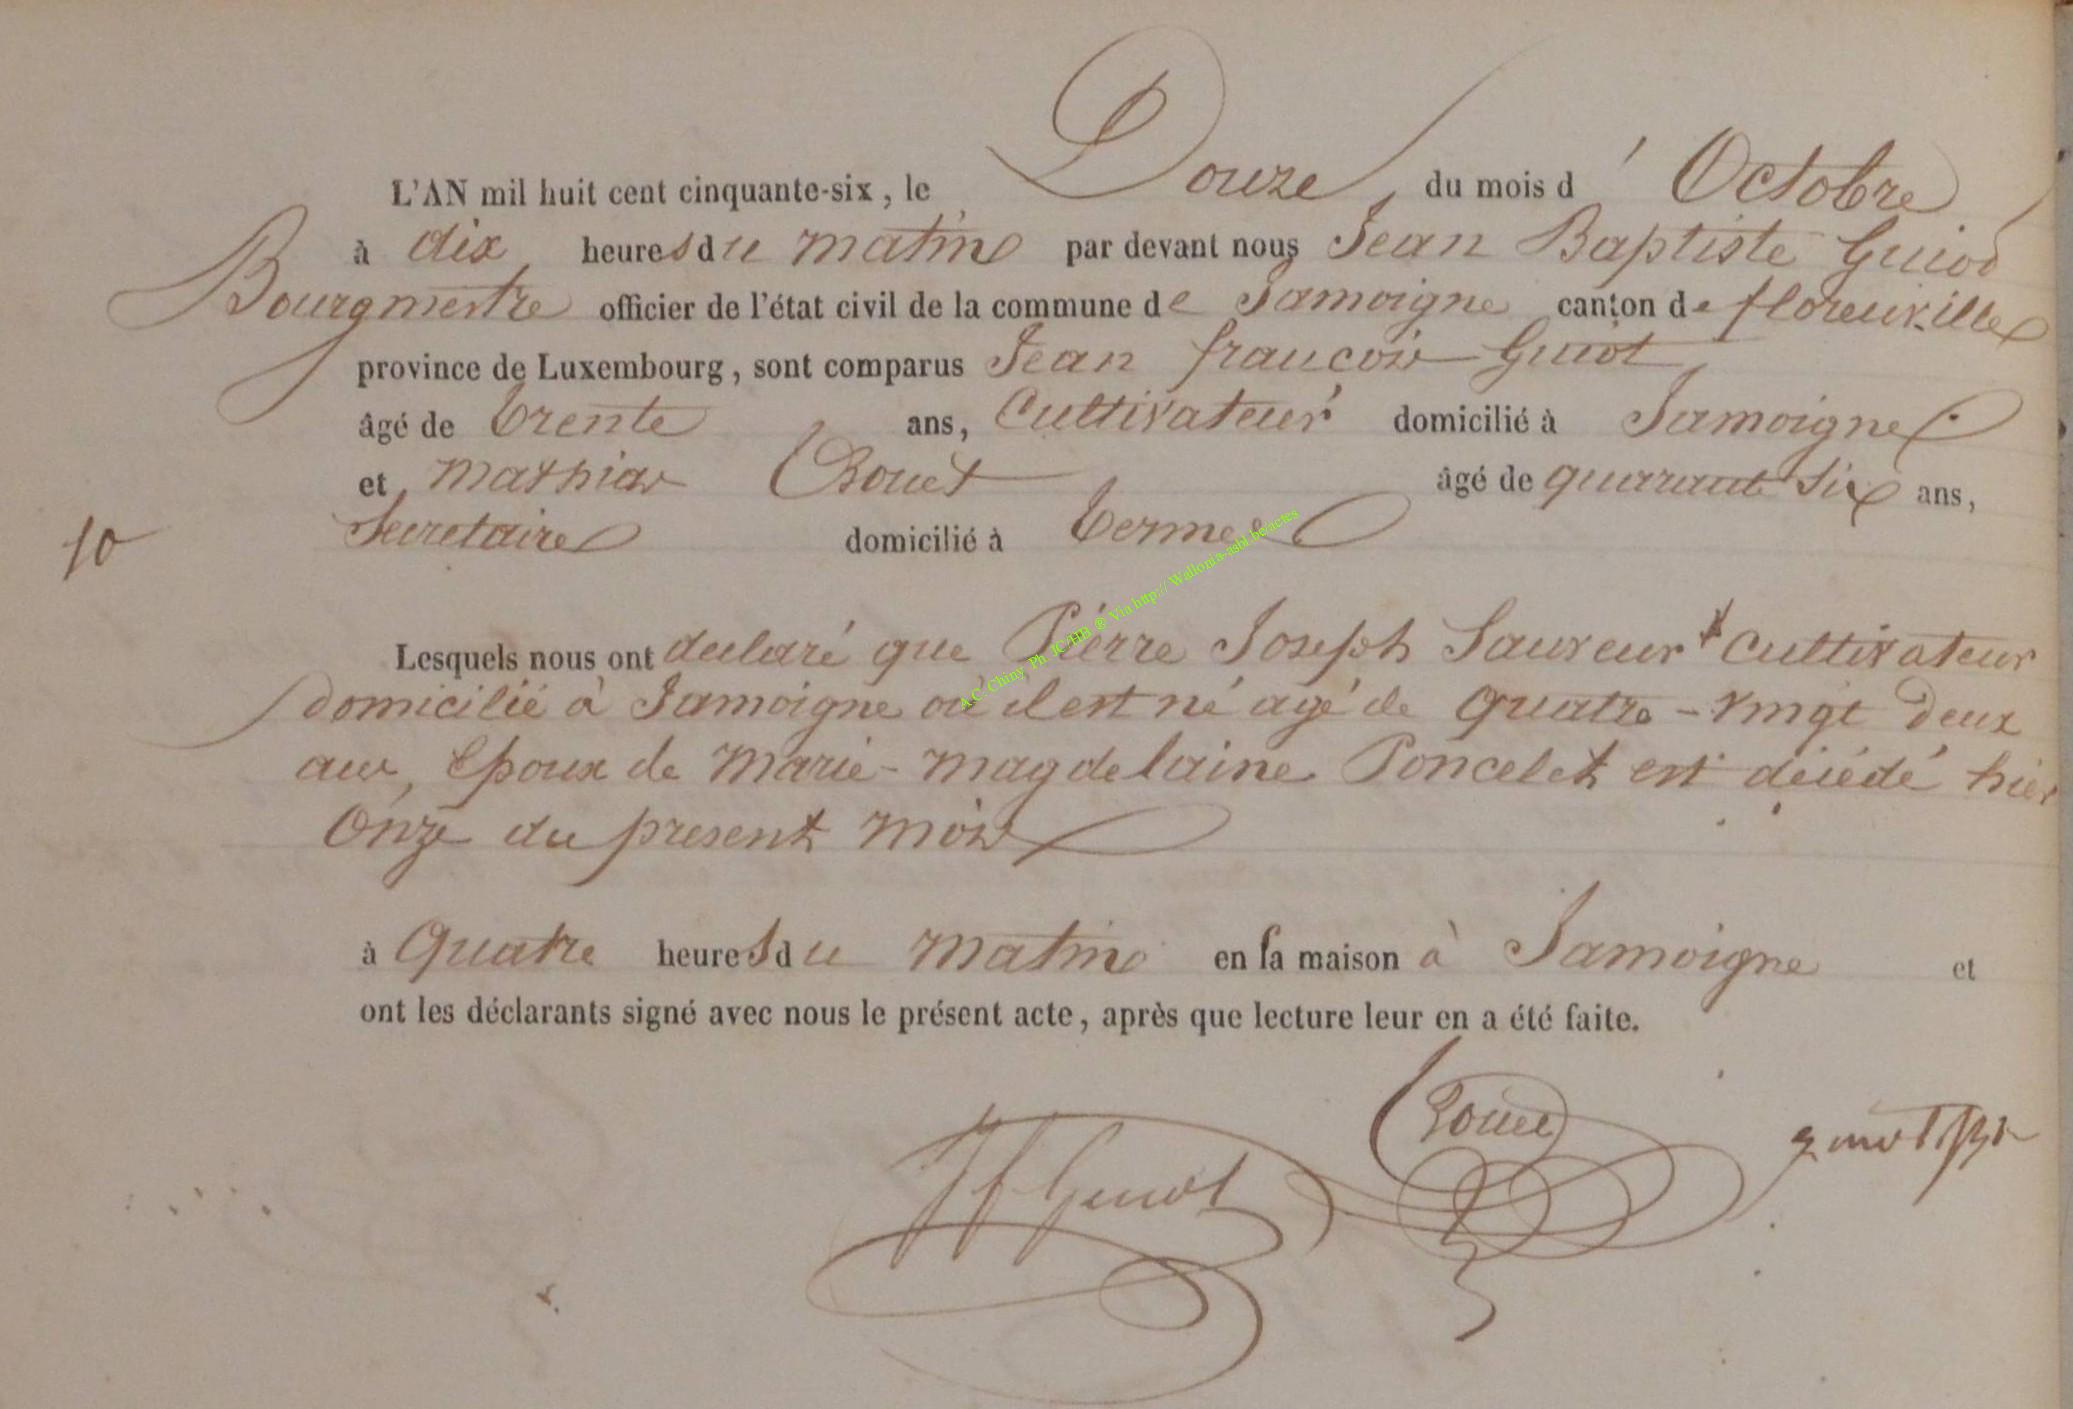 L'AN mil huit cent cinquante-six, le Douze du mois d'Octobre
à dix heures du matin par devant nous Jean Baptiste Guiot
Bourgmestre officier de l'état civil de la commune de Jamoigne canton de florenville
province de Luxembourg, sont comparus Jean françois Guiot
âgé de trente ans, Cultivateur domicilié à Jamoigne
et mathias Rouet âgé de quarante six ans,
Secretaire domicilié à termes
10
Lesquels nous ont declaré que Pierre Joseph Sauveur cultivateur
domicilié à Jamoigne où il est né agé de quatre-vingt deux
ans, Epoux de Marie-magdelaine Poncelet est décédé hier
Onze du present mois
à quatre heures du matin en sa maison à Jamoigne et
ont les déclarants signé avec nous le présent acte, après que lecture leur en a été faite.
JfGuiot Rouet
A.C. Chiny Ph JC/HB ® Via http:// Wallonia-asbl.be/actes